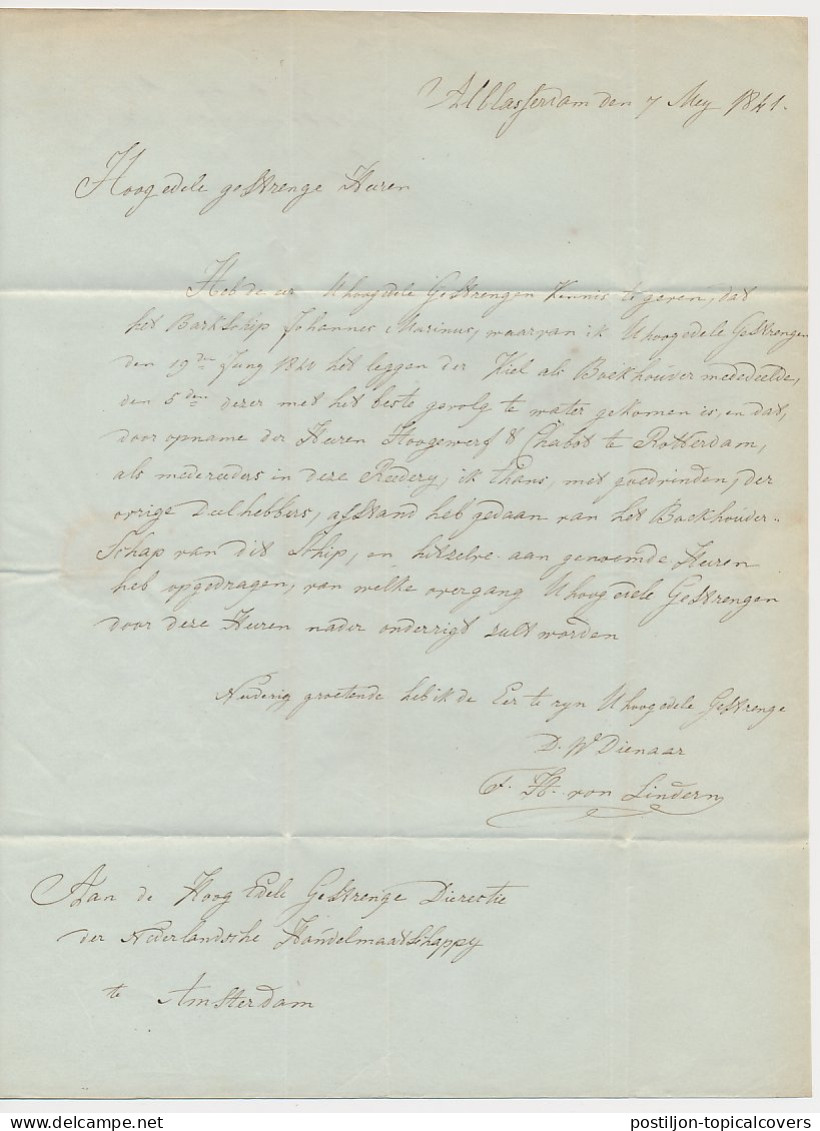 Alblasserdam den 7 Mey 1841.
Hoog edele gestrenge Heeren
Heb de eer Uhoogedele Gestrengen Kennis te geven, dat
het Barkschip Johannes Marinus, waarvan ik Uhoogedele Gestrengen
den 19den Juny 1840 het leggen der Kiel als Boekhouder mededeelde,
den 5den dezer met het beste gevolg te water gekomen is, en dat,
door opname der Heeren Hoogewerf & Chabot te Rotterdam,
als medereeders in deze Reedery, ik thans, met goedvinden, der
overige Deelhebbers, afstand heb gedaan van het Boekhouder-
schap van dit Schip, en hetzelve aan genoemde Heeren
heb opgedragen, van welke overgang Uhoog edele Gestrengen
door deze Heeren nader onderrigt zult worden
Nederig groetende heb ik de Eer te zyn Uhoogedele Gestrenge
D. W. Dienaar
F. H. von Lindern
Aan de Hoog Edele Gestrenge Directie
der Nederlandsche Handelmaatschappy
te Amsterdam
postiljon-topicalcovers